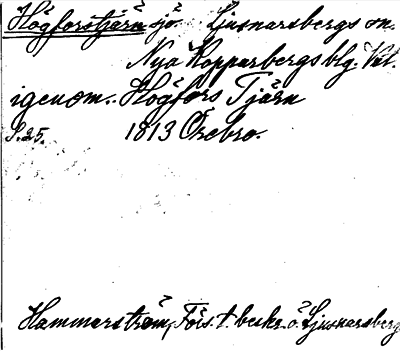 Högforstjärn sjö. Ljusnarsbergs sn.
Nya Kopparbergs blg. Vtl.
igenom.. Högfors Tjärn
S. 25. 1813 Örebro.
Hammarström, Förs. t. beskr. ö. Ljusnarsberg